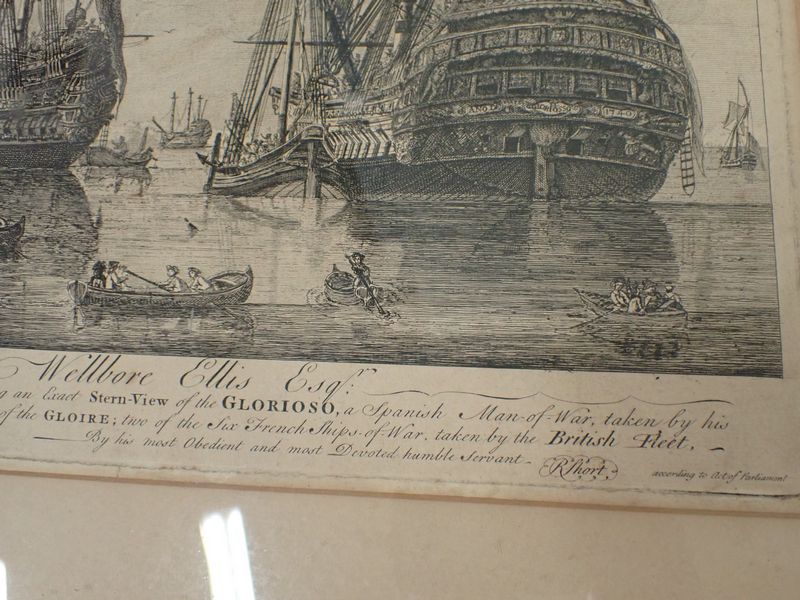 1740
Wellbore Ellis Esqr:
an Exact Stern-View of the GLORIOSO, a Spanish Man-of-War, taken by his
of the GLOIRE; two of the Six French Ships-of-War, taken by the British Fleet,
By his most Obedient and most Devoted humble Servant
RShort
according to Act of Parliament